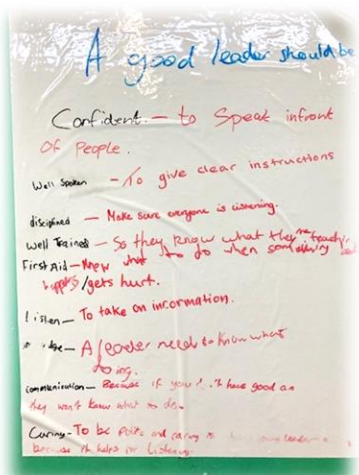 A good leader should be
Confident - to Speak infront
Of People.
Well Spoken - To give clear instructions
disciplined - Make sure everyone is listening.
Well Trained - So they know what they're teaching
First Aid - to do when something bad
happens/gets hurt.
listen - To take on information.
A leader need to know what
doing.
Communication - Because if you have good
they won't know what to do.
Caring - To be Polite and caring to
because it helps for listening.